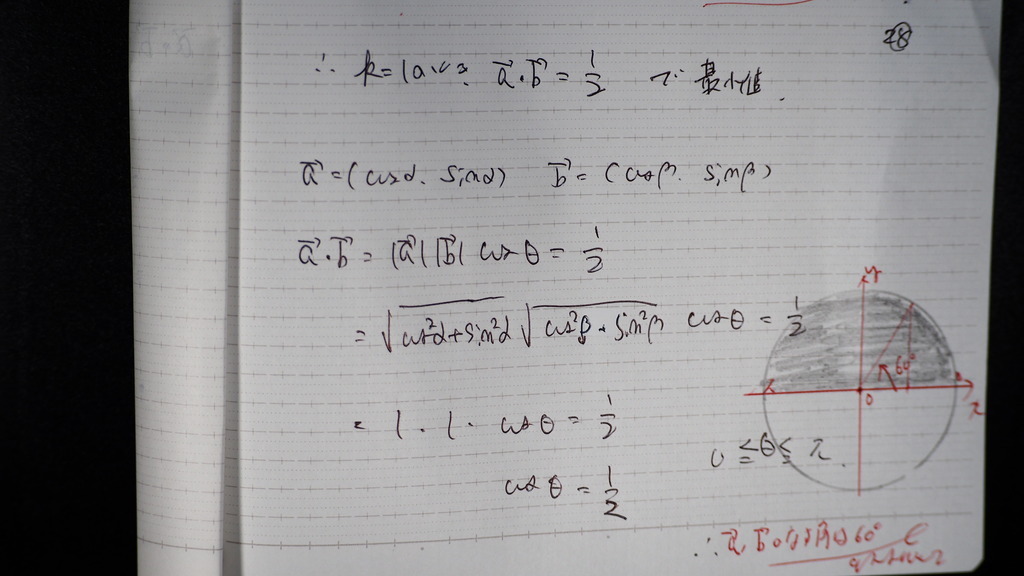 28
∴ k=1のとき a⃗・b⃗ = 1/2 で 最小値.
a⃗=(cosα. sinα) b⃗=(cosβ. sinβ)
a⃗・b⃗ = |a⃗||b⃗| cosθ = 1/2
= √cos²α+sin²α √cos²β+sin²β cosθ = 1/2
= 1・1・cosθ = 1/2
cosθ = 1/2
y
60°
π
0
x
0≦θ≦π.
∴ a⃗, b⃗のなす角は60°
answer